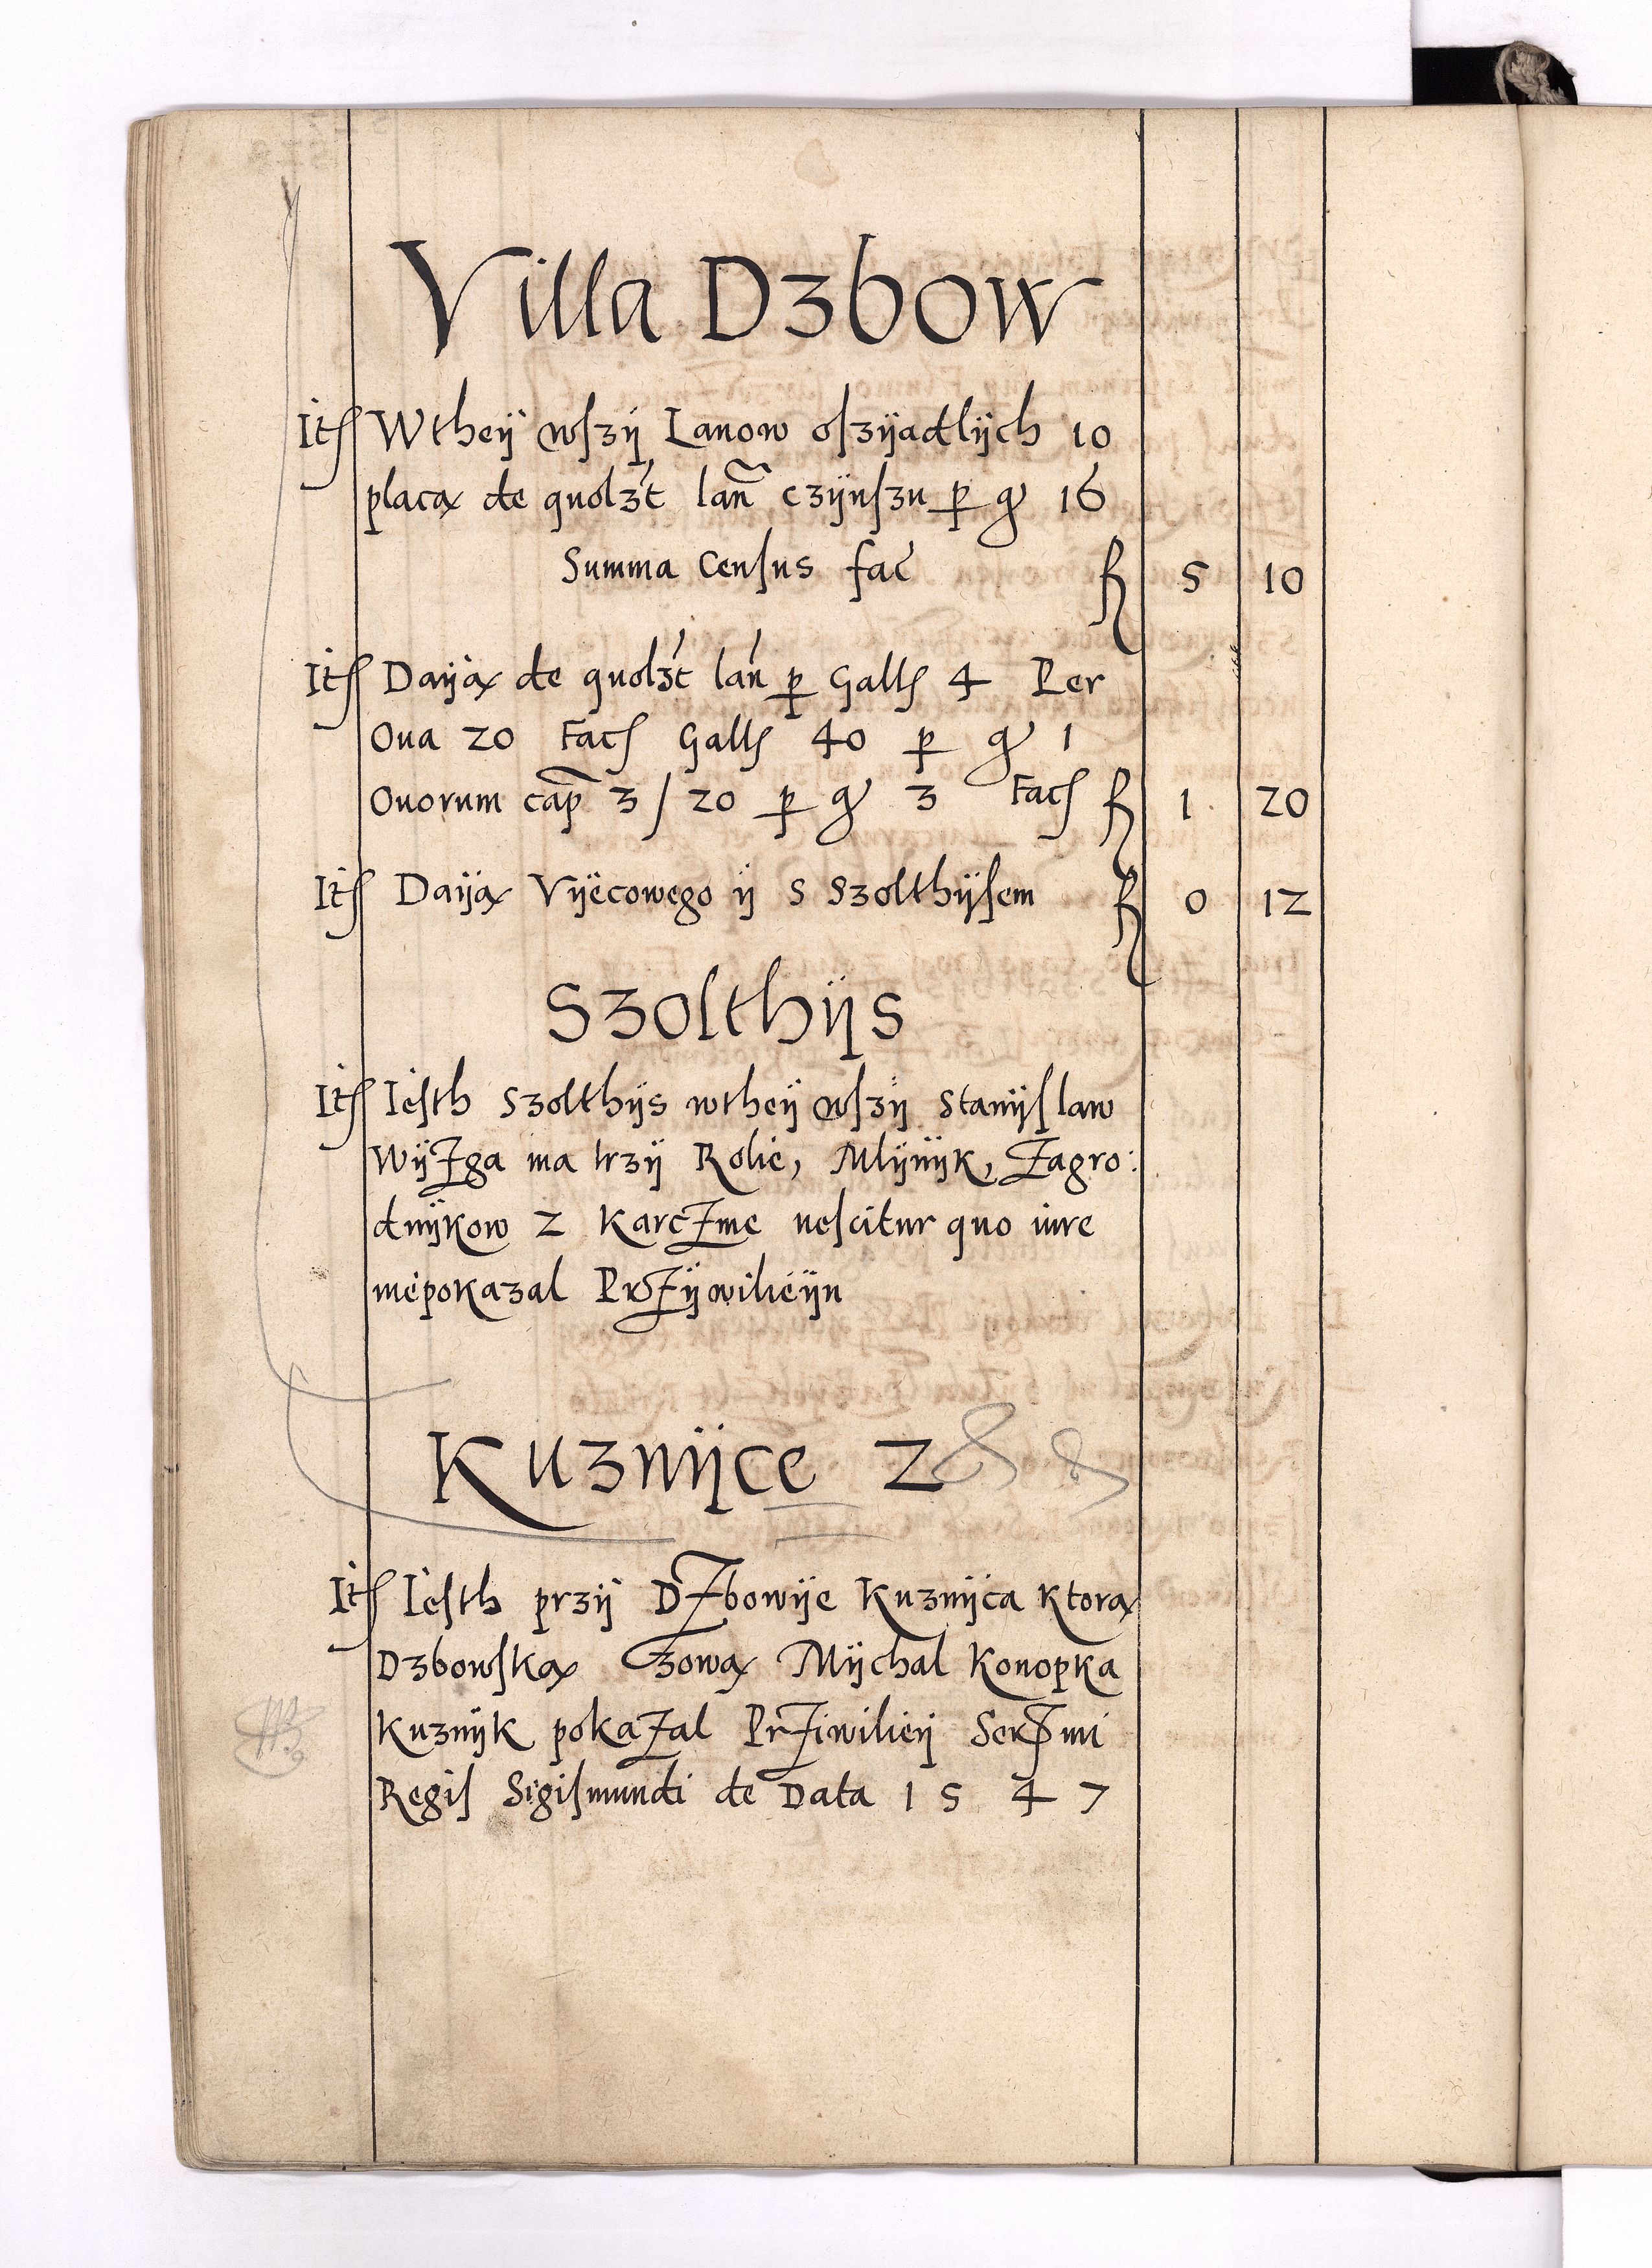 Villa Dzbow
Itſ Wtheÿ wſzÿ Lanow oſzÿadlÿch 10
placą de quolzt lan̄ czÿnſzu p gr 16
Summa Cenſus fac fl 5 10
Itſ Daÿą de quolzt lan p Gallſ 4 Per
Oua 20 Facſ Gallſ 40 p gr 1
Ouorum cap 3/20 p gr 3 Facſ fl 1 20
Itſ Daÿą Vÿecowego ÿ s Szolthÿſem fl 0 12
Szolthÿs
Itſ Ieſth Szolthÿs wtheÿ wſzÿ Stanÿſlaw
Wÿżga ma trzÿ Rolie, Mlÿnÿk, Zagro:
dnÿkow 2 Karczme neſcitur quo iure
niepokazal Przÿwilieÿu
Kuznÿce 2
Itſ Ieſth przÿ Dzbowÿe Kuznÿca Ktorą
Dzbowſką zową Mÿchal Konopka
Kuznÿk pokazal Prziwilieÿ Serꝭmi
Regiſ Sigiſmundi de Data 1547